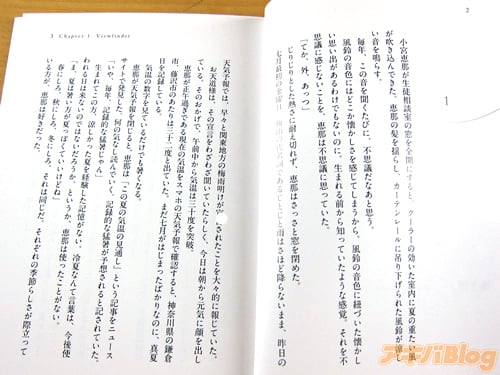 2
1
小宮恵那が生徒相談室の窓を全開にすると、クーラーの効いた室内に夏の重たい風
が吹き込んできた。恵那の髪を揺らし、カーテンレールに吊り下げられた風鈴が涼し
い音を鳴らす。
毎年、この音を聞くたびに、不思議だなあと思う。
風鈴の音色にはどこか懐かしさを感じてしまうから。風鈴の音色に紐づいた懐かし
い思い出があるわけでもないのに。生まれる前から知っていたような感覚。それを不
思議に感じないことを、恵那は不思議に思っていた。
「てか、外、あっつ」
じりじりとした熱さに耐え切れず、恵那はさっさと窓を閉めた。
七月最初の
であるじとじと雨はさほど降らないまま、昨日の
3 Chapter 1 Viewfinder
天気予報では、早々と関東地方の梅雨明けが宣言されたことを大々的に報じていた。
お天道様は、その宣言をわざわざ聞いていたらしく、今日は朝から元気に顔を出し
ている。そのおかげで、午前中から気温は三十度を突破。
恵那が正午過ぎである現在の気温をスマホの天気予報で確認すると、神奈川県の鎌倉
市、藤沢市のあたりは三十二度と出ていた。まだ七月がはじまったばかりなのに、真夏
日を記録している。
気温の数字を見ているだけでも暑くなる。
恵那が天気予報を閉じると、恵那は「この夏の気温の見通し」という記事をニュース
サイトで発見した。何の気なしに読んでいくと、記録的な猛暑が予想されると記されていた。
「いや、毎年、記録的な猛暑じゃん」
生まれてこの方、涼しかった夏を経験した記憶がない。冷夏なんて言葉は、今後使
われる日は来ないのではないだろうか。というか、恵那は使ったことがない。
「ま、夏は暑い方が夏っぽくていいけどね」
春にしろ、秋にしろ、冬にしろ、それは同じだ。それぞれの季節らしさが際立って
いる方が、恵那は好きだった。
アキバBlog